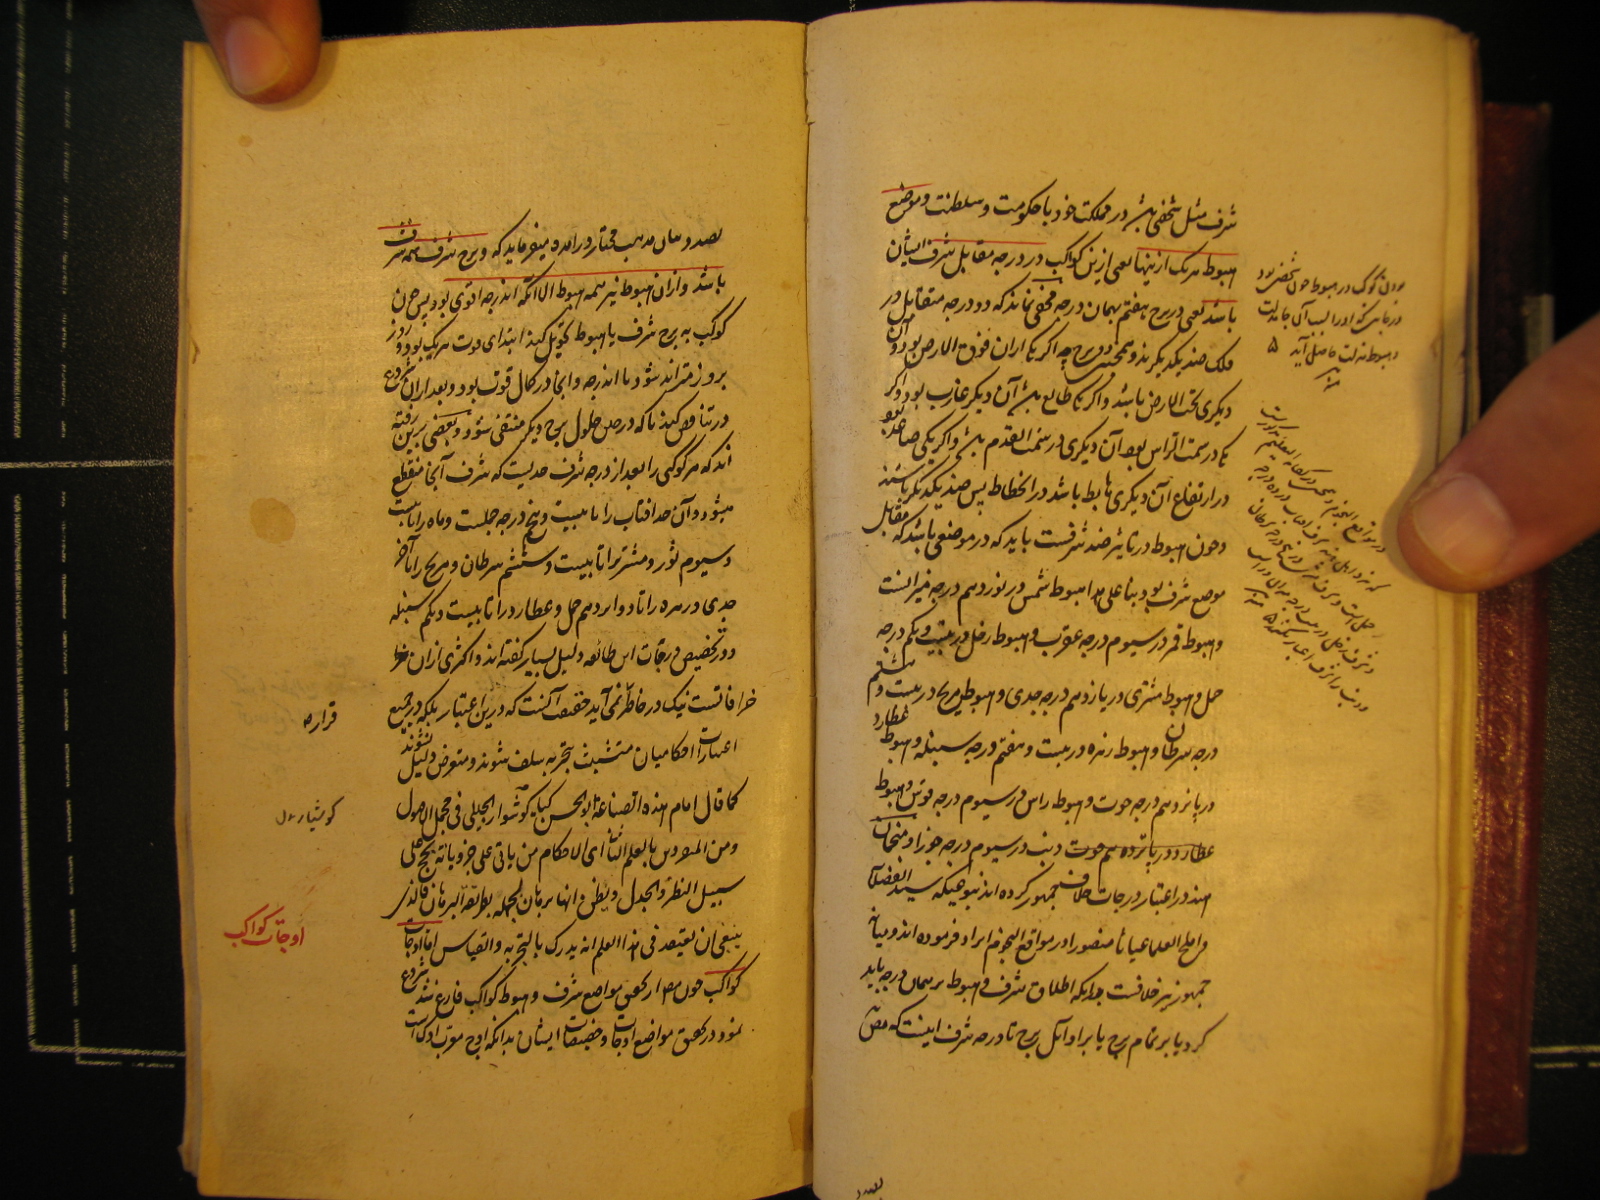 شرف مثل شخصی باشد در مملکت خود با حکومت و سلطنت و موضع
هبوط هریک ازینها یعنی ازین کواکب در درجه مقابل شرف ایشان
باشد یعنی در برج هفتم بهمان درجه مخفی نماند که دو درجه متقابل در
فلک ضد یکدیگرند و همچنین دو برج چه اگر یکی ازان فوق الارض بود آن
دیگری تحت الارض باشد و اگر یکی طالع باشد آن دیگر غارب بود و اگر
یکی در سمت الراس بود آن دیگری در سمت القدم باشد و اگر یکی صاعد بود
در ارتفاع آن دیگری هابط باشد در انحطاط پس ضد یکدیگر باشند
و چون هبوط در تاثیر ضد شرفست باید که در موضعی باشد که مقابل
موضع شرف بود بنا علی هذا هبوط شمس در نوزدهم درجه میزانست
و هبوط قمر در سیوم درجه عقرب و هبوط زحل در بیست و یکم درجه
حمل و هبوط مشتری در پانزدهم درجه جدی و هبوط مریخ در بیست و هشتم
درجه سرطان و هبوط زهره در بیست و هفتم درجه سنبله و هبوط عطارد
در پانزدهم درجه حوت و هبوط راس در سیوم درجه قوس و هبوط
عطارد در پانزده هم حوت ذنب در سیوم درجه جوزا و منجمان
هند در اعتبار درجات خلاف جمهور کرده اند بنوعیکه سید الفضلا
و املح العلما غیاثا منصورا در مواقع النجوم ایراد فرموده اند و میانه
جمهور نیز خلافست بدانکه اطلاق شرف و هبوط بر همان درجه باید
کرد یا بر تمام برج یا بر اوائل برج تا درجه شرف اینست که مص
بودن کوکب در هبوط چون شخصی بود
و هبوط مذلت حاصل آید
بصدد بیان مذهب مختار در امده میفرماید که و برج شرف همه شرف
باشد و ازان هبوط نیز همه هبوط الا آنکه اندرجه اقوی بود و پس چون
کوکب به برج شرف یا هبوط تحویل کند ابتدای قوت هریک بود و روز
بروز متزاید شود تا اندرجه و انجا در کمال قوت بود و بعد ازان شروع
در تناقص کند تا که در حین حلول برج دیگر منتفی شود و بعضی برین رفته
اند که هر کوکبی را بعد از درجه شرف حدیست که شرف آنجا منقطع
میشود و آن حد افتاب را تا بیست و پنج درجه حملست و ماه را تا بیست
و سیوم ثور و مشتر یرا تا بیست و ششم سرطان و مریخ را تا آخر
جدی و زهره را تا دوازدهم حمل و عطارد را تا بیست و یکم سنبله
و در تخصیص درجات این طائفه دلیل بسیار گفته اند و اکثری ازان
خرافاتست نیک در خاطر نمی آید حقیقت آنست که درین اعتبار بلکه در جمیع
اعتبارات احکامیان متشبث بتجربه سلف شوند و متعرض دلیل نشوند
کما قال امام هذه الصناعة ابو الحسن کیا کوشوار الجیلی فی مجمل الاصول
و من المنسوبین بالعلم الثانی ای الاحکام من یاتی علی جزویاته بحجج علی
سبیل النظر و الجدل و یظن و انها برهان لجهله بطریقة البرهان فالذی
ینبغی ان یعتقد فی هذا العلم انه یدرک بالتجربه و القیاس اما اوجات
کواکب چون مص از تحقیق مواضع شرف و هبوط کواکب فارغ شد شروع
نمود در تحقیق مواضع اوجات و حضیضات ایشان بدانکه اوج معرب اوک است
قراره
کوشیار
اوجات کواکب